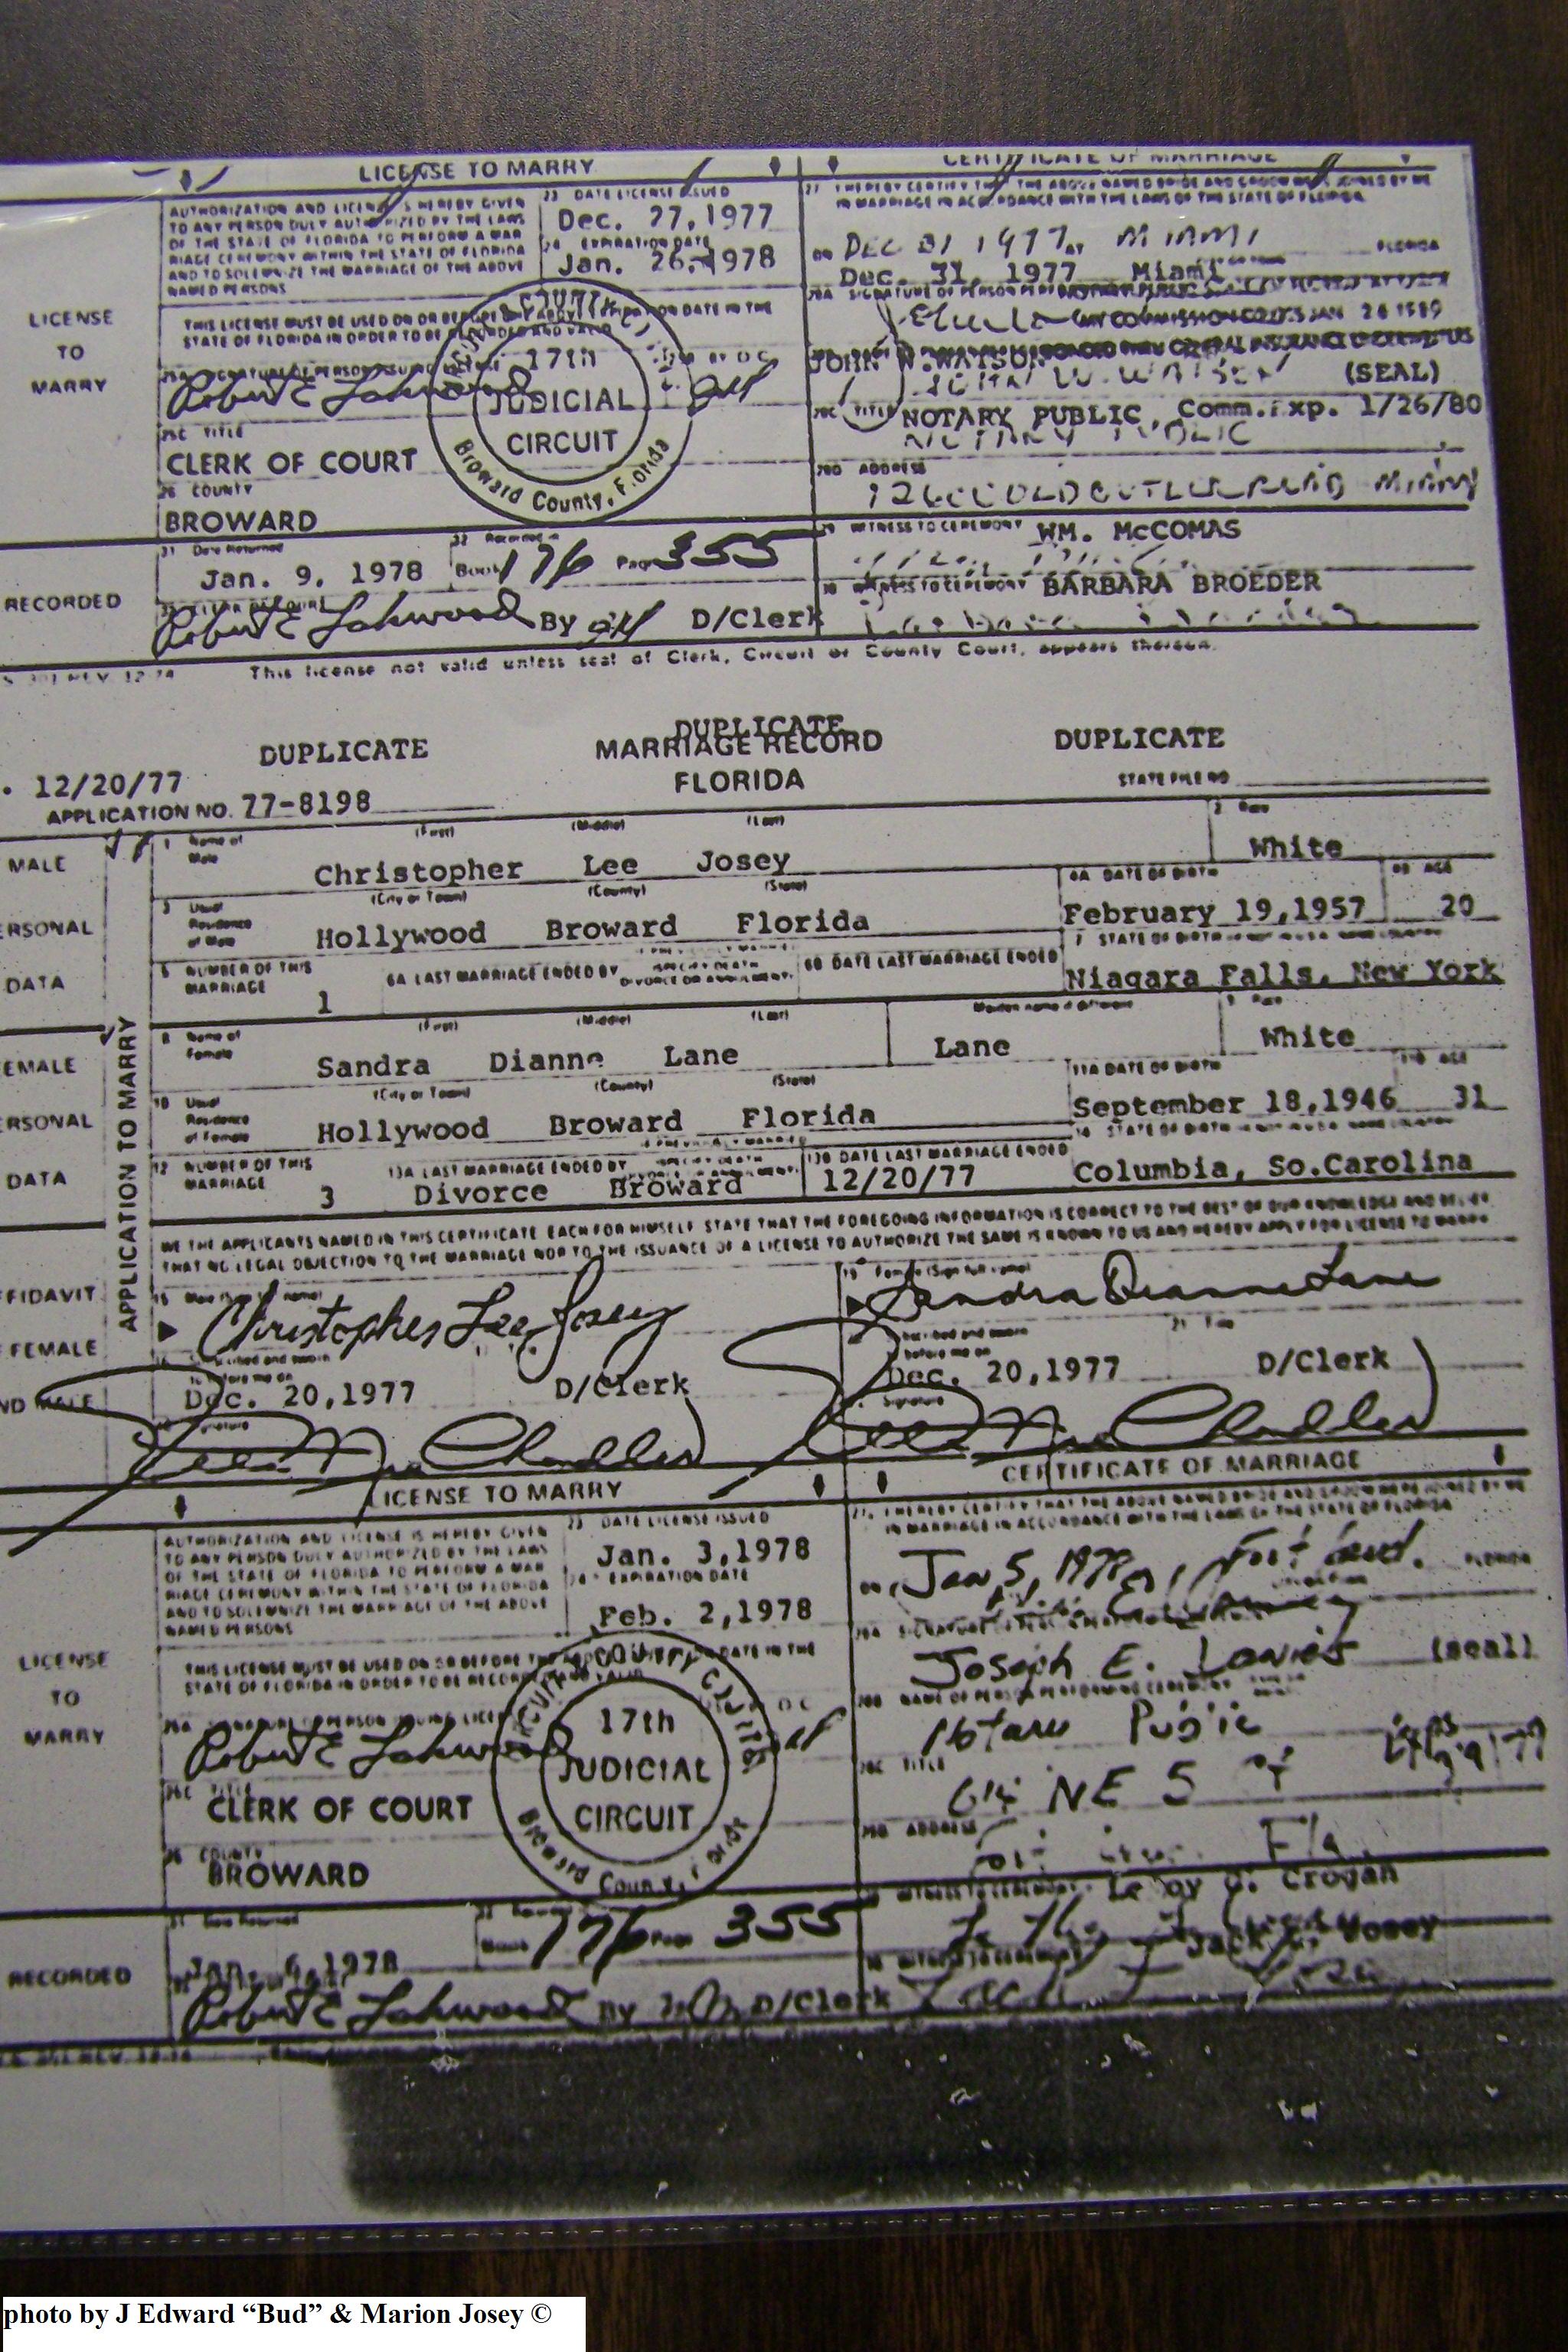 LICENSE TO MARRY
CERTIFICATE OF MARRIAGE
LICENSE
TO
MARRY
AUTHORIZATION AND LICENSE IS HEREBY GIVEN
TO ANY PERSON DULY AUTHORIZED BY THE LAWS
OF THE STATE OF FLORIDA TO PERFORM A MAR
RIAGE CEREMONY WITHIN THE STATE OF FLORIDA
AND TO SOLEMNIZE THE MARRIAGE OF THE ABOVE
NAMED PERSONS
23 DATE LICENSE ISSUED
Dec. 27,1977
24 EXPIRATION DATE
Jan. 26, 1978
27 I HEREBY CERTIFY THAT THE ABOVE NAMED BRIDE AND GROOM WERE JOINED BY ME
IN MARRIAGE IN ACCORDANCE WITH THE LAWS OF THE STATE OF FLORIDA
ON DEC 31 1977 AT MIAMI FLORIDA
Dec. 31, 1977 Miami
THIS LICENSE MUST BE USED ON OR BEFORE THE ABOVE EXPIRATION DATE IN THE
STATE OF FLORIDA IN ORDER TO BE RECORDED AND VALID
28A SIGNATURE OF PERSON
MY COMMISSION EXPIRES JAN 26 1980
JOHN W. WATSON
JOHN W. WATSON (SEAL)
Robert E Lockwood
17th
JUDICIAL
CIRCUIT
Broward County, Florida
25C TITLE
CLERK OF COURT
28C TITLE NOTARY PUBLIC, Comm.Exp. 1/26/80
NOTARY PUBLIC
26 COUNTY
BROWARD
28D ADDRESS
12600 OLD CUTLER ROAD MIAMI
29 WITNESS TO CEREMONY WM. McCOMAS
30 WITNESS TO CEREMONY BARBARA BROEDER
RECORDED
31 Date Returned
Jan. 9, 1978
32 Recorded in
Book 176 Page 355
Robert E Lockwood By D/Clerk
This license not valid unless seal of Clerk, Circuit or County Court, appears thereon.
DUPLICATE
DUPLICATE
DUPLICATE
MARRIAGE RECORD
FLORIDA
STATE FILE NO
12/20/77
APPLICATION NO. 77-8198
APPLICATION TO MARRY
MALE
PERSONAL
DATA
1 Name of Male (First) (Middle) (Last)
Christopher Lee Josey
2 Race
White
3 Usual Residence of Male (City or Town) (County) (State)
Hollywood Broward Florida
4A DATE OF BIRTH
February 19,1957
4B AGE
20
5 NUMBER OF THIS MARRIAGE
1
6A LAST MARRIAGE ENDED BY
6B DATE LAST MARRIAGE ENDED
7 STATE OF BIRTH
Niagara Falls, New York
FEMALE
PERSONAL
DATA
8 Name of Female (First) (Middle) (Last)
Sandra Dianne Lane
Maiden name if different
Lane
9 Race
White
10 Usual Residence of Female (City or Town) (County) (State)
Hollywood Broward Florida
11A DATE OF BIRTH
September 18,1946
11B AGE
31
12 NUMBER OF THIS MARRIAGE
3
13A LAST MARRIAGE ENDED BY
Divorce Broward
13B DATE LAST MARRIAGE ENDED
12/20/77
14 STATE OF BIRTH
Columbia, So.Carolina
WE THE APPLICANTS NAMED IN THIS CERTIFICATE EACH FOR HIMSELF STATE THAT THE FOREGOING INFORMATION IS CORRECT TO THE BEST OF OUR KNOWLEDGE AND BELIEF
THAT NO LEGAL OBJECTION TO THE MARRIAGE NOR TO THE ISSUANCE OF A LICENSE TO AUTHORIZE THE SAME IS KNOWN TO US AND HEREBY APPLY FOR LICENSE TO MARRY
AFFIDAVIT
FEMALE
AND MALE
15 Male (Sign full name)
Christopher Lee Josey
19 Female (Sign full name)
Sandra Dianne Lane
Subscribed and sworn to before me on
Dec. 20,1977 D/Clerk
Subscribed and sworn to before me on
21 Title
Dec. 20,1977 D/Clerk
Signature
Chandler
Signature
Chandler
LICENSE TO MARRY
CERTIFICATE OF MARRIAGE
LICENSE
TO
MARRY
AUTHORIZATION AND LICENSE IS HEREBY GIVEN
TO ANY PERSON DULY AUTHORIZED BY THE LAWS
OF THE STATE OF FLORIDA TO PERFORM A MAR
RIAGE CEREMONY WITHIN THE STATE OF FLORIDA
AND TO SOLEMNIZE THE MARRIAGE OF THE ABOVE
NAMED PERSONS
23 DATE LICENSE ISSUED
Jan. 3,1978
24 EXPIRATION DATE
Feb. 2,1978
27. I HEREBY CERTIFY THAT THE ABOVE NAMED BRIDE AND GROOM WERE JOINED BY ME
IN MARRIAGE IN ACCORDANCE WITH THE LAWS OF THE STATE OF FLORIDA
ON Jan 5, 1978 Fort Laud. FLORIDA
THIS LICENSE MUST BE USED ON OR BEFORE THE DATE IN THE
STATE OF FLORIDA IN ORDER TO BE RECORDED AND VALID
28A SIGNATURE
Joseph E. (seal)
28B NAME OF PERSON PERFORMING CEREMONY
Notary Public
Robert E Lockwood
17th
JUDICIAL
CIRCUIT
Broward County, Florida
25C TITLE
CLERK OF COURT
28C TITLE
NE 5
26 COUNTY
BROWARD
28D ADDRESS
Fla.
WITNESS TO CEREMONY LeRoy J. Crogan
WITNESS TO CEREMONY Jack Josey
RECORDED
31 Date Returned
Jan. 6,1978
32 Recorded
Book 176 Page 355
Robert E Lockwood By D/Clerk
photo by J Edward “Bud” & Marion Josey ©